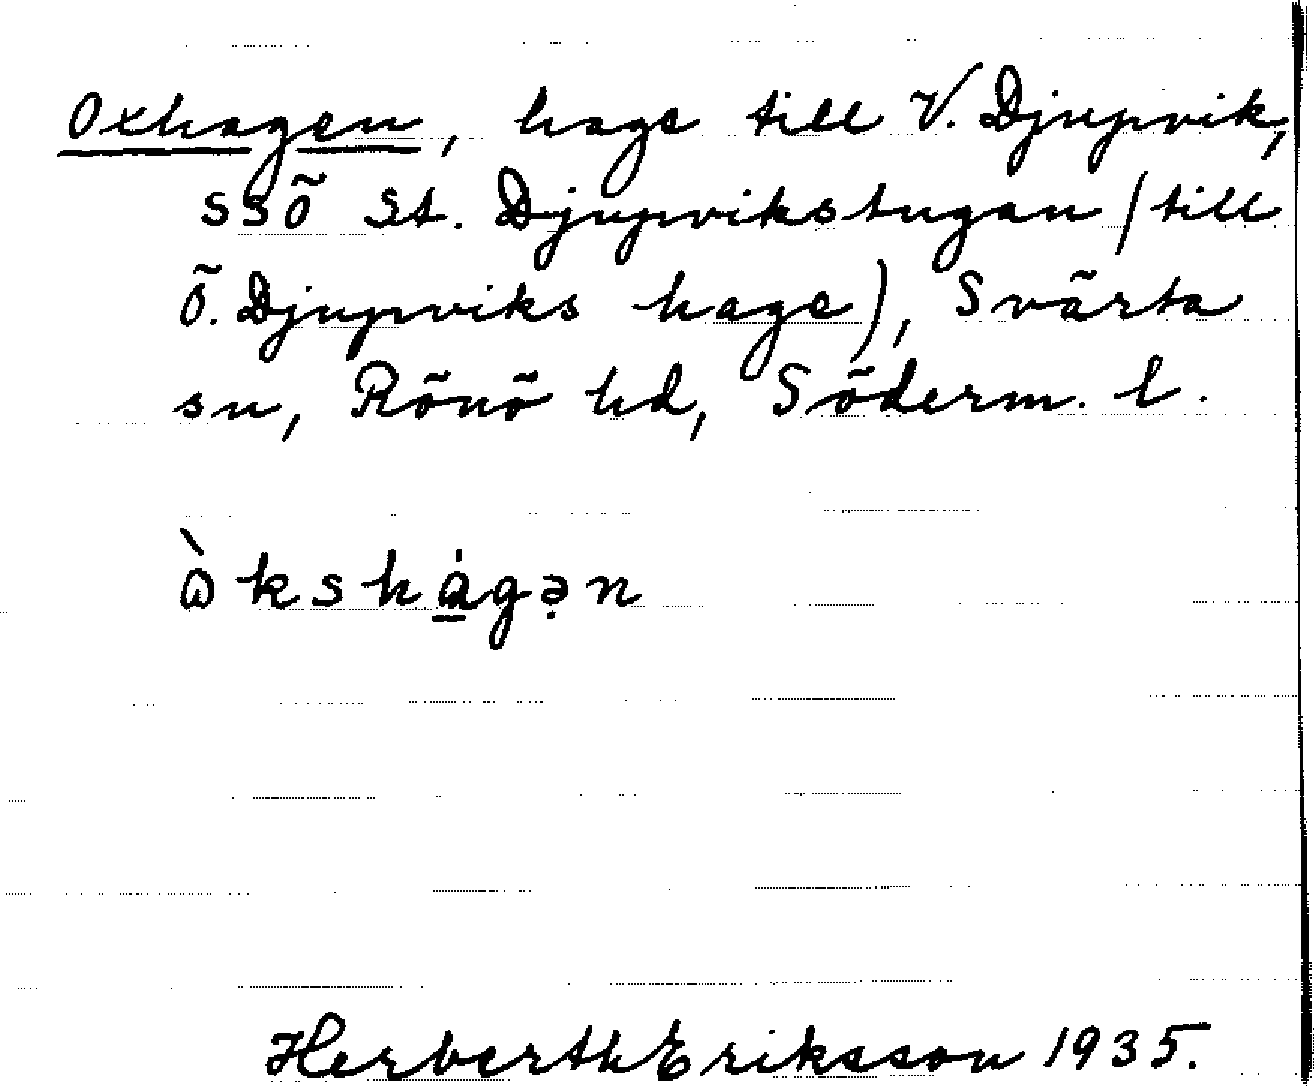 Oxhagen, hage till V. Djupvik,
SSÖ St. Djupvikstugan (till
Ö. Djupviks hage), Svärta
sn, Rönö hd, Söderm. l.
Herberth Eriksson 1935.